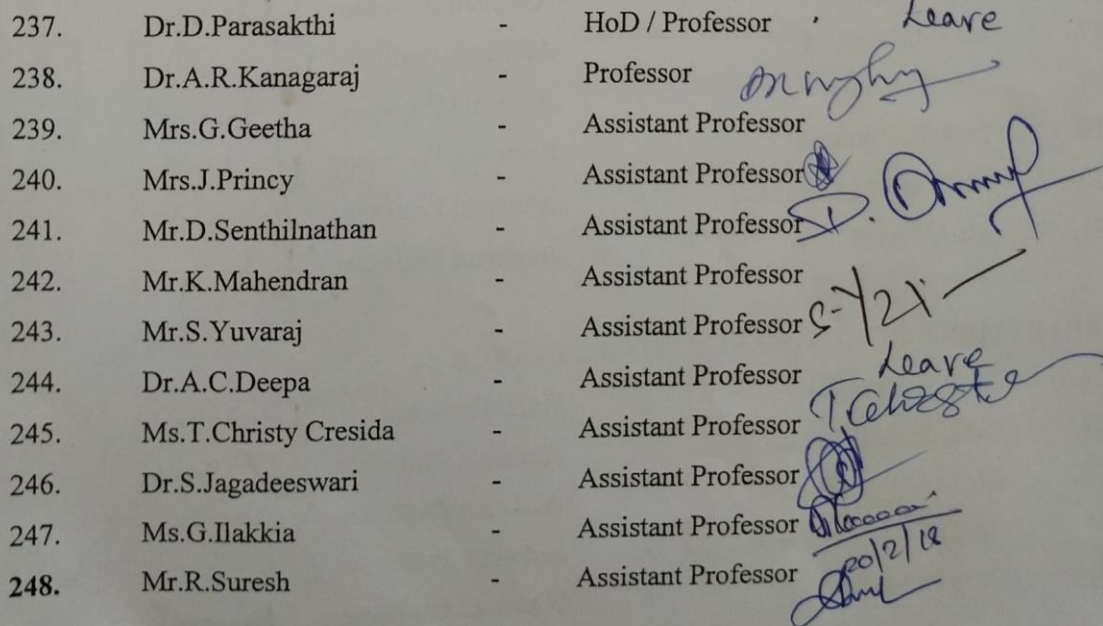 237. Dr.D.Parasakthi - HoD / Professor Leave
238. Dr.A.R.Kanagaraj - Professor
239. Mrs.G.Geetha - Assistant Professor
240. Mrs.J.Princy - Assistant Professor
241. Mr.D.Senthilnathan - Assistant Professor D.
242. Mr.K.Mahendran - Assistant Professor
243. Mr.S.Yuvaraj - Assistant Professor
244. Dr.A.C.Deepa - Assistant Professor Leave
245. Ms.T.Christy Cresida - Assistant Professor
246. Dr.S.Jagadeeswari - Assistant Professor
247. Ms.G.Ilakkia - Assistant Professor
20/2/18
248. Mr.R.Suresh - Assistant Professor